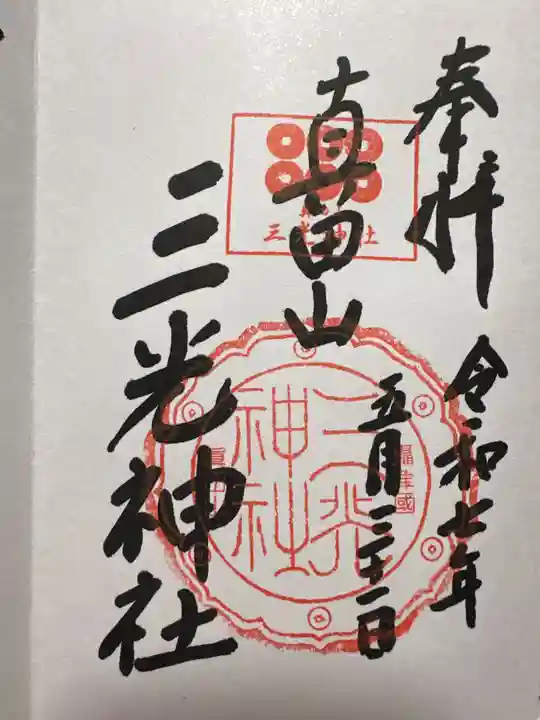 奉拝
令和七年
五月三十一日
真田山
三光神社
三光神社
三光
神社
攝津國
眞田山